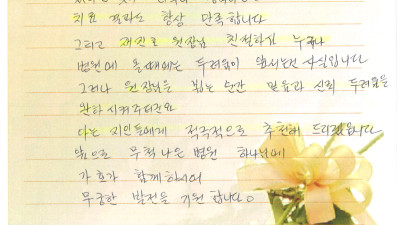 치료 결과도 항상 만족합니다
그리고 재진료 원장님 친절하심 누구나
병원에 올때에는 두려움이 앞서는건 사실입니다
그러나 원장님을 뵙는 순간 믿음과 신뢰 두려움을
완화시켜주더군요
다른 지인들에게 적극적으로 추천해 드리겠습니다
앞으로 무척 나은 병원 하나님에
가호가 함께하시며
무궁한 발전을 기원 합니다